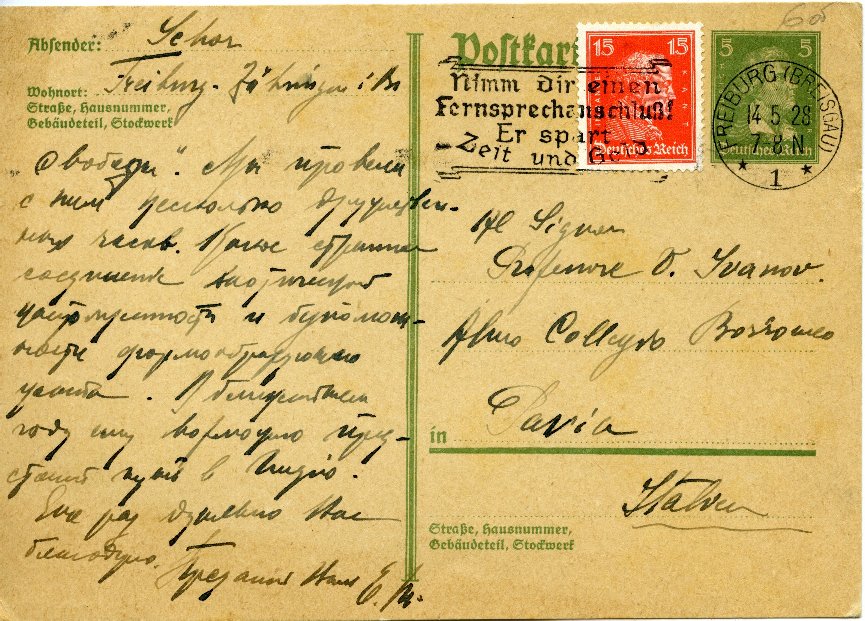 Absender: Schor
Wohnort: Freiburg-Zähringen i Br
Straße, Hausnummer,
Gebäudeteil, Stockwerk
свободы". Мы провели
с ним несколько дружествен-
ных часов. странное
соединение хаотической
и
ности формообразующего
. В ближайшем
году ему возможно пред-
стоит путь в Индию.
Еще раз душевно Вас
благодарю.
Преданный Вам Е. Ш.
Postkarte
15 15
KANT
Deutsches Reich
5 5
Deutsches Reich
Nimm Dir einen
Fernsprechanschluß!
Er spart
Zeit und Geld
FREIBURG (BREISGAU)
14 5 28
7-8 N
* 1 *
Al Signor
Professore V. Ivanov.
Almo Collegio Borromeo
in Pavia
Italien
Straße, Hausnummer,
Gebäudeteil, Stockwerk